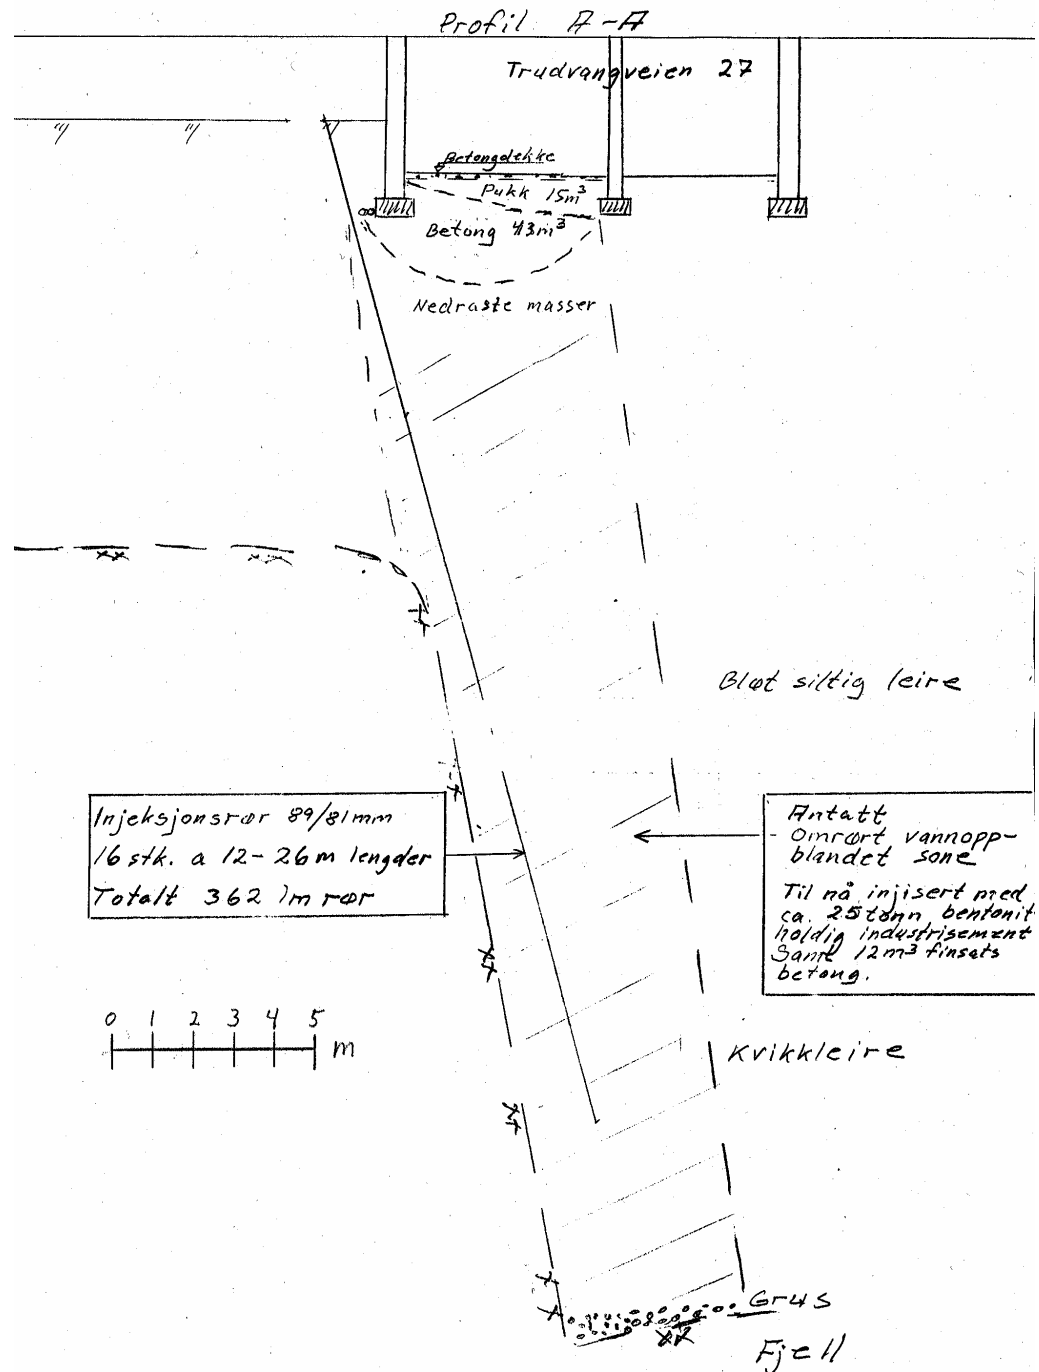 Profil A-A
Trudvangveien 27
Betongdekke
Pukk 15m³
Betong 43m³
Nedraste masser
Bløt siltig leire
Injeksjonsrør 89/81mm
16 stk. a 12-26m lengder
Totalt 362 lm rør
Antatt
Omrørt vannopp-
blandet sone
Til nå injisert med
ca. 25 tonn bentonit
holdig industrisement
Samt 12m³ finsats
betong.
0 1 2 3 4 5 m
Kvikkleire
Grus
Fjell